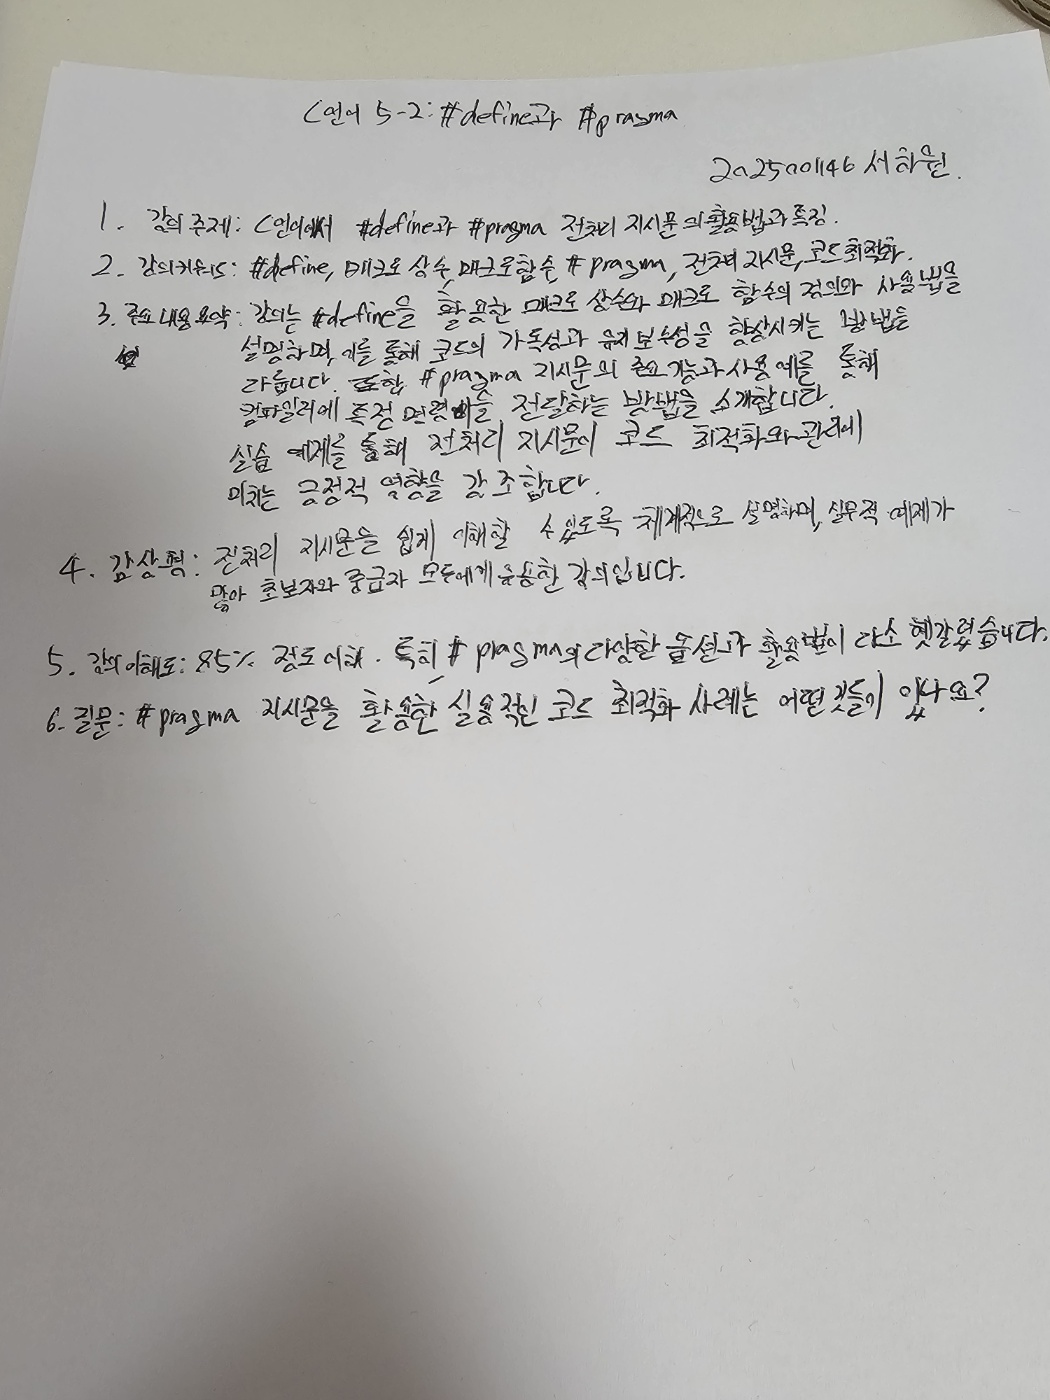 C언어 5-2: #define과 #pragma
2025001146 서하원.
1. 강의 주제: C언어에서 #define과 #pragma 전처리 지시문의 활용법과 특징.
2. 강의키워드: #define, 매크로 상수, 매크로함수, #pragma, 전처리 지시문, 코드 최적화.
3. 주요 내용 요약: 강의는 #define을 활용한 매크로 상수와 매크로 함수의 정의와 사용법을
설명하며, 이를 통해 코드의 가독성과 유지보수성을 향상시키는 방법을
다룹니다. 또한 #pragma 지시문의 주요기능과 사용 예를 통해
컴파일러에 특정 명령어를 전달하는 방법을 소개합니다.
실습 예제를 통해 전처리 지시문이 코드 최적화와 관리에
미치는 긍정적 영향을 강조합니다.
4. 감상평: 전처리 지시문을 쉽게 이해할 수 있도록 체계적으로 설명하며, 실무적 예제가
많아 초보자와 중급자 모두에게 유용한 강의입니다.
5. 강의 이해도: 85% 정도 이해. 특히 #pragma의 다양한 옵션과 활용법이 다소 헷갈렸습니다.
6. 질문: #pragma 지시문을 활용한 실용적인 코드 최적화 사례는 어떤 것들이 있나요?